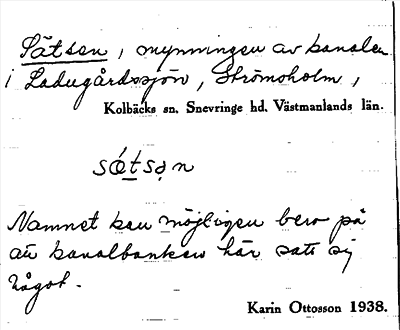 Sätsen, mynningen av kanalen
i Ladugårdssjön, Strömsholm,
Kolbäcks sn. Snevringe hd. Västmanlands län.
sátsən
Namnet kan möjligen bero på
att kanalbanken här satt sig
något.
Karin Ottosson 1938.